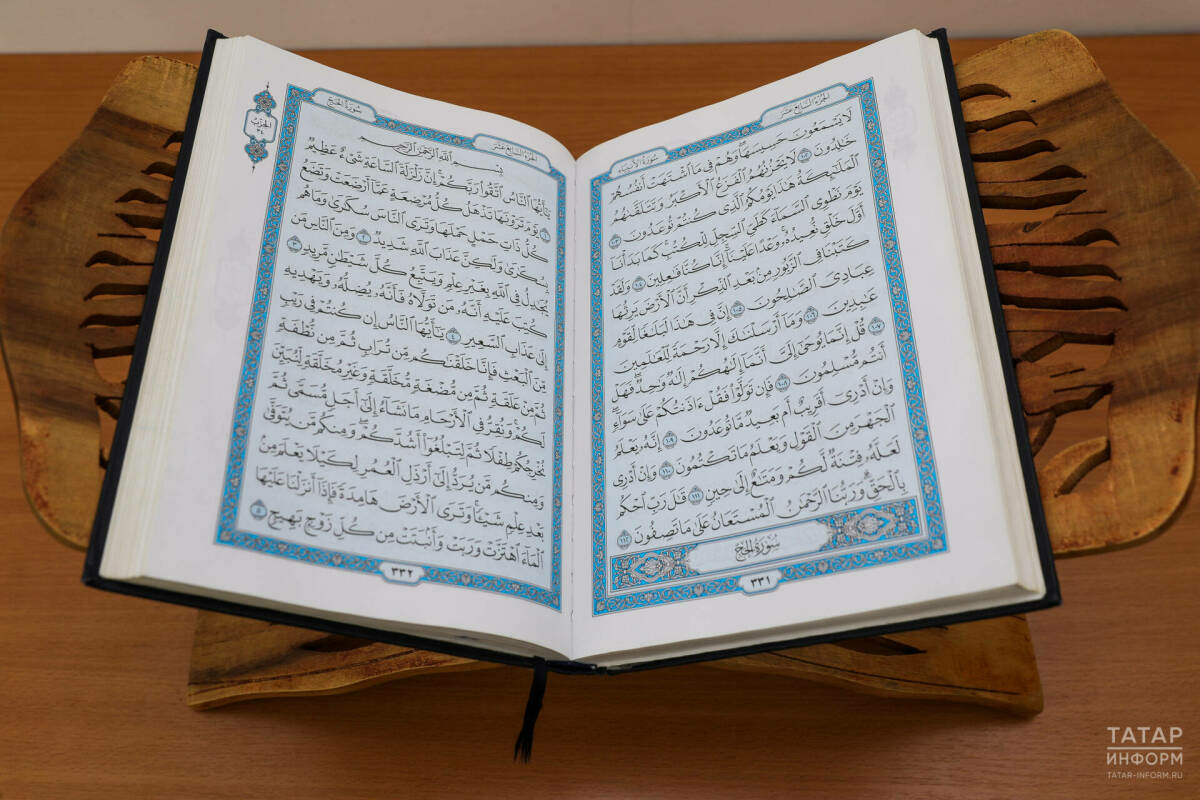 الجُزْءُ السَّابِعَ عَشَرَ
سُورَةُ الأَنبِيَاءِ
لَا يَسْمَعُونَ حَسِيسَهَا ۖ وَهُمْ فِى مَا ٱشْتَهَتْ أَنفُسُهُمْ
خَٰلِدُونَ ١٠٢ لَا يَحْزُنُهُمُ ٱلْفَزَعُ ٱلْأَكْبَرُ وَتَتَلَقَّىٰهُمُ
ٱلْمَلَٰٓئِكَةُ هَٰذَا يَوْمُكُمُ ٱلَّذِى كُنتُمْ تُوعَدُونَ ١٠٣
يَوْمَ نَطْوِى ٱلسَّمَآءَ كَطَىِّ ٱلسِّجِلِّ لِلْكُتُبِ ۚ كَمَا بَدَأْنَآ
أَوَّلَ خَلْقٍ نُّعِيدُهُۥ ۚ وَعْدًا عَلَيْنَآ ۚ إِنَّا كُنَّا فَٰعِلِينَ ١٠٤ وَلَقَدْ
كَتَبْنَا فِى ٱلزَّبُورِ مِنۢ بَعْدِ ٱلذِّكْرِ أَنَّ ٱلْأَرْضَ يَرِثُهَا
عِبَادِىَ ٱلصَّٰلِحُونَ ١٠٥ إِنَّ فِى هَٰذَا لَبَلَٰغًا لِّقَوْمٍ
عَٰبِدِينَ ١٠٦ وَمَآ أَرْسَلْنَٰكَ إِلَّا رَحْمَةً لِّلْعَٰلَمِينَ
١٠٧ قُلْ إِنَّمَا يُوحَىٰٓ إِلَىَّ أَنَّمَآ إِلَٰهُكُمْ إِلَٰهٌ وَٰحِدٌ ۖ فَهَلْ
أَنتُم مُّسْلِمُونَ ١٠٨ فَإِن تَوَلَّوْا۟ فَقُلْ ءَاذَنتُكُمْ عَلَىٰ سَوَآءٍ ۖ
وَإِنْ أَدْرِىٓ أَقَرِيبٌ أَم بَعِيدٌ مَّا تُوعَدُونَ ١٠٩ إِنَّهُۥ يَعْلَمُ
ٱلْجَهْرَ مِنَ ٱلْقَوْلِ وَيَعْلَمُ مَا تَكْتُمُونَ ١١٠ وَإِنْ أَدْرِى
لَعَلَّهُۥ فِتْنَةٌ لَّكُمْ وَمَتَٰعٌ إِلَىٰ حِينٍ ١١١ قَٰلَ رَبِّ ٱحْكُم
بِٱلْحَقِّ ۗ وَرَبُّنَا ٱلرَّحْمَٰنُ ٱلْمُسْتَعَانُ عَلَىٰ مَا تَصِفُونَ ١١٢
سُورَةُ الحَجِّ
٣٣١
سُورَةُ الحَجِّ
الجُزْءُ السَّابِعَ عَشَرَ
الحِزْبُ
٣٤
بِسْمِ ٱللَّهِ ٱلرَّحْمَٰنِ ٱلرَّحِيمِ
يَٰٓأَيُّهَا ٱلنَّاسُ ٱتَّقُوا۟ رَبَّكُمْ ۚ إِنَّ زَلْزَلَةَ ٱلسَّاعَةِ شَىْءٌ عَظِيمٌ
١ يَوْمَ تَرَوْنَهَا تَذْهَلُ كُلُّ مُرْضِعَةٍ عَمَّآ أَرْضَعَتْ وَتَضَعُ
كُلُّ ذَاتِ حَمْلٍ حَمْلَهَا وَتَرَى ٱلنَّاسَ سُكَٰرَىٰ وَمَا هُم
بِسُكَٰرَىٰ وَلَٰكِنَّ عَذَابَ ٱللَّهِ شَدِيدٌ ٢ وَمِنَ ٱلنَّاسِ مَن
يُجَٰدِلُ فِى ٱللَّهِ بِغَيْرِ عِلْمٍ وَيَتَّبِعُ كُلَّ شَيْطَٰنٍ مَّرِيدٍ ٣
كُتِبَ عَلَيْهِ أَنَّهُۥ مَن تَوَلَّاهُ فَأَنَّهُۥ يُضِلُّهُۥ وَيَهْدِيهِ
إِلَىٰ عَذَابِ ٱلسَّعِيرِ ٤ يَٰٓأَيُّهَا ٱلنَّاسُ إِن كُنتُمْ فِى رَيْبٍ
مِّنَ ٱلْبَعْثِ فَإِنَّا خَلَقْنَٰكُم مِّن تُرَابٍ ثُمَّ مِن نُّطْفَةٍ
ثُمَّ مِنْ عَلَقَةٍ ثُمَّ مِن مُّضْغَةٍ مُّخَلَّقَةٍ وَغَيْرِ مُخَلَّقَةٍ لِّنُبَيِّنَ
لَكُمْ ۚ وَنُقِرُّ فِى ٱلْأَرْحَامِ مَا نَشَآءُ إِلَىٰٓ أَجَلٍ مُّسَمًّى ثُمَّ
نُخْرِجُكُمْ طِفْلًا ثُمَّ لِتَبْلُغُوٓا۟ أَشُدَّكُمْ ۖ وَمِنكُم مَّن يُتَوَفَّىٰ
وَمِنكُم مَّن يُرَدُّ إِلَىٰٓ أَرْذَلِ ٱلْعُمُرِ لِكَيْلَا يَعْلَمَ مِنۢ
بَعْدِ عِلْمٍ شَيْـًٔا ۚ وَتَرَى ٱلْأَرْضَ هَامِدَةً فَإِذَآ أَنزَلْنَا عَلَيْهَا
ٱلْمَآءَ ٱهْتَزَّتْ وَرَبَتْ وَأَنۢبَتَتْ مِن كُلِّ زَوْجٍۭ بَهِيجٍ ٥
٣٣٢
ТАТАР
ИНФОРМ
TATAR-INFORM.RU